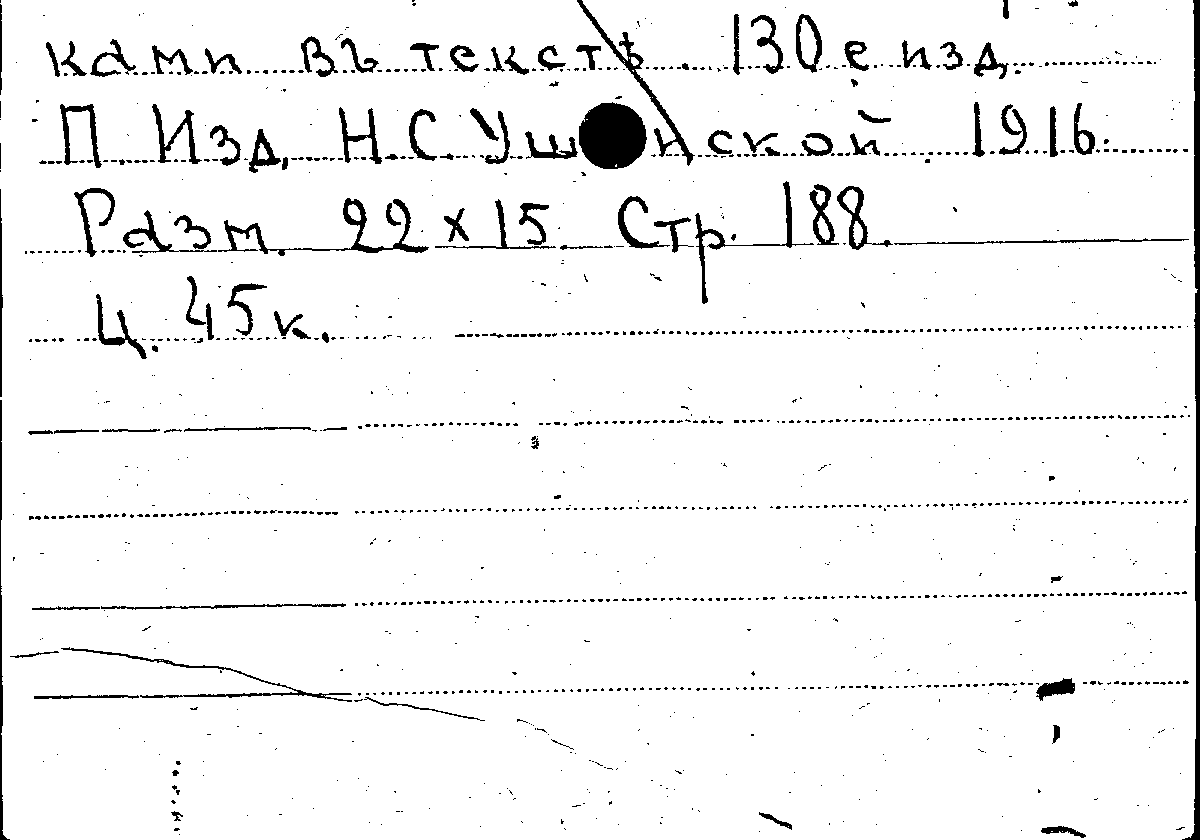 ками въ текстѣ. 130е изд.
П. Изд. Н.С. Ушинской. 1916.
Разм. 22 x 15. Стр. 188.
Ц. 45 к.